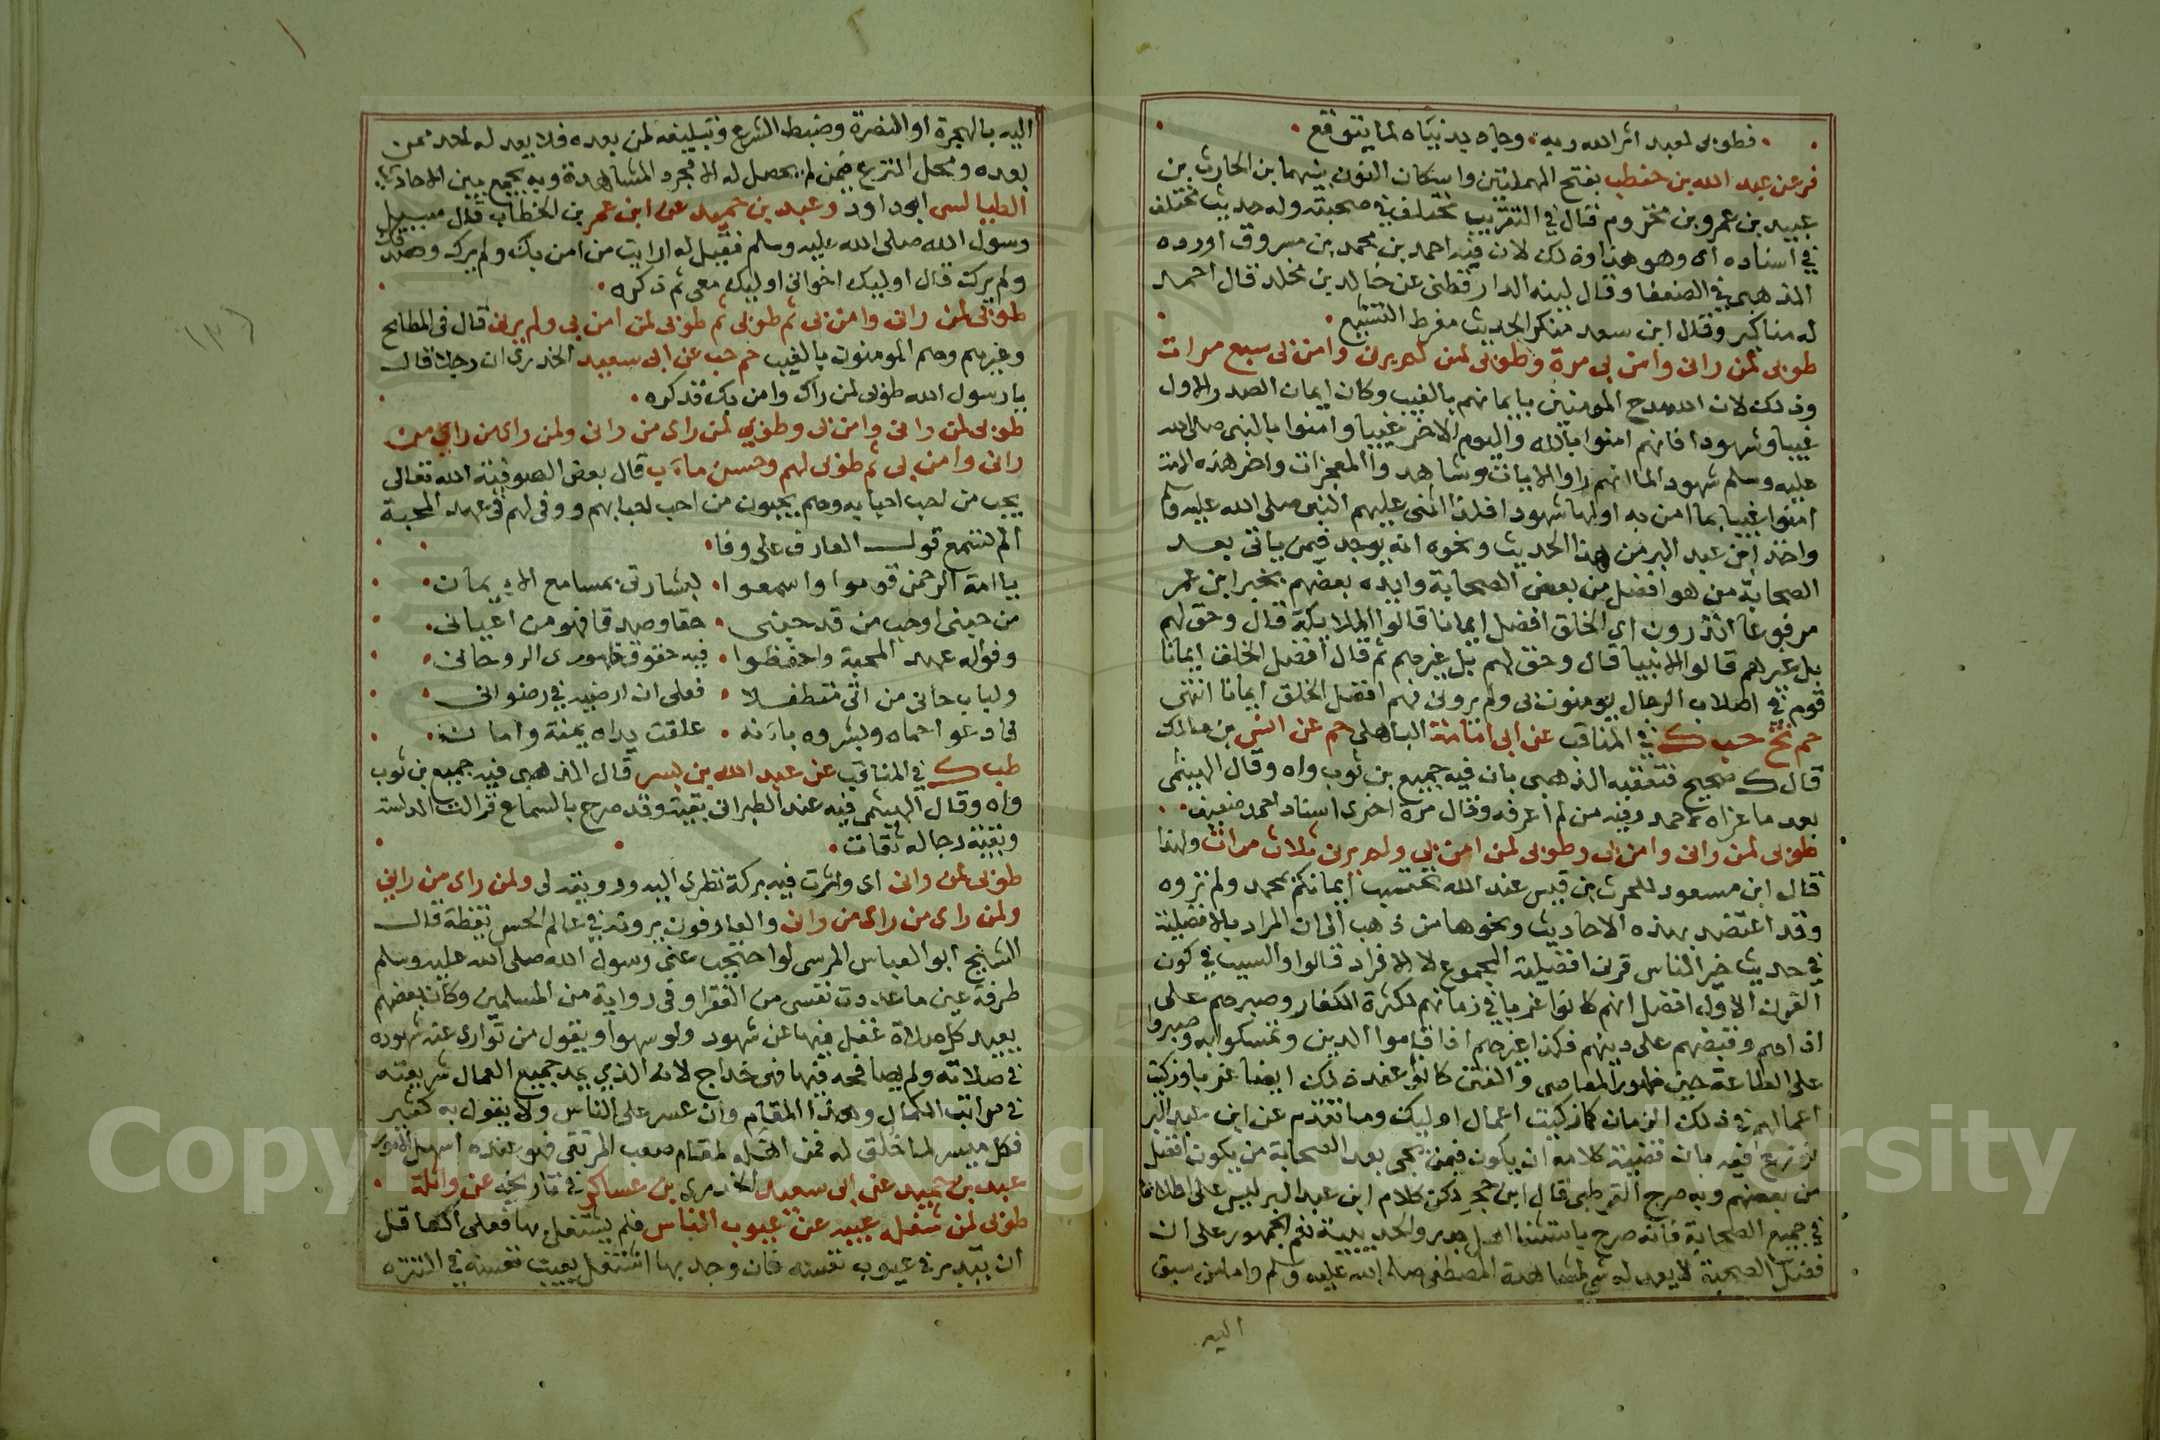 فطوبى لعبد اثر الله ربه وجاه يدنياه لما يتوقع
فر عن عبد الله بن حنطب بفتح المهملتين واسكان النون بينهما بن الحارث بن
عبيد بن عمرو بن مخزوم قال في التقريب مختلف في صحبته وله حديث مختلف
في اسناده اى وهو هذا وذلك لان فيه احمد بن محمد بن مسروق اورده
الذهبي في الضعفا وقال لينه الدارقطنى عن خالد بن مخلد قال احمد
له مناكير وقال ابن سعد منكر الحديث مفرط التشيع
طوبى لمن رانى وامن بى مرة وطوبى لمن لم يرنى وامن بى سبع مرات
وذلك لان الله مدح المومنين بايمانهم بالغيب وكان ايمان الصدر الاول
غيبا وشهودا فانهم امنوا بالله واليوم الاخر غيبا وامنوا بالنبى صلى الله
عليه وسلم شهودا لما انهم راوا الايات وشاهدوا المعجزات واخر هذه الامة
امنوا غيبا بما امن به اولها شهودا فلذا اثنى عليهم النبى صلى الله عليه وسلم
واخذ ابن عبد البر من هذا الحديث ونحوه انه يوجد فيمن ياتى بعد
الصحابة من هو افضل من بعض الصحابة وايده بعضهم بخبر ابن عمر
مرفوعا اتدرون اي الخلق افضل ايمانا قالوا الملايكة قال وحق لهم
بل غيرهم قالوا الانبيا قال وحق لهم بل غيرهم ثم قال افضل الخلق ايمانا
قوم في اصلاب الرجال يومنون بى ولم يرونى فهم افضل الخلق ايمانا انتهى
حم تخ حب ك في المناقب عن ابى امامة الباهلى حم عن انس بن مالك
قال ك صحيح فتعقبه الذهبى بان فيه جميع بن ثوب واه وقال الهيثمى
بعد ما عزاه لاحمد وفيه من لم اعرفه وقال مرة اخرى اسناد احمد ضعيف
طوبى لمن رانى وامن بى وطوبى لمن امن بى ولم يرنى ثلاث مرات ولهذا
قال ابن مسعود للحرث بن قيس عند الله نحتسب ايمانكم بمحمد ولم تروه
وقد اعتضد بهذه الاحاديث ونحوها من ذهب الى ان المراد بالافضلية
في حديث خير الناس قرنى افضلية المجموع لا الافراد قالوا والسبب في كون
القرن الاول افضل انهم كانوا غربا في زمانهم لكثرة الكفار وصبرهم على
اذاهم وقبضهم على دينهم فكذا غيرهم اذا قاموا الدين وتمسكوا به وصبروا
على الطاعة حين ظهور المعاصى والفتن كانوا عند ذلك ايضا غربا وزكت
اعمالهم في ذلك الزمان كما زكيت اعمال اوليك وما تقدم عن ابن عبد البر
نوزع فيه بان قضية كلامه ان يكون فيمن يجى بعد الصحابة من يكون افضل
من بعضهم وبه صرح القرطبى قال ابن حجر لكن كلام ابن عبد البر ليس على اطلاقه
في جميع الصحابة فانه صرح باستثنا اهل بدر والحديبية نعم الجمهور على ان
فضل الصحبة لا يعدله شى لمشاهدة المصطفى صلى الله عليه وسلم واما من سبق
اليه
اليه بالهجرة او النصرة وضبط الشرع وتبليغه لمن بعده فلا يعدله احد ممن
بعده ومحل النزع فيمن لم يحصل له الا مجرد المشاهدة وبه يجمع بين الاحاديث
الطيالسى ابو داود وعبد بن حميد عن ابن عمر بن الخطاب قال سيل
رسول الله صلى الله عليه وسلم فقيل له ارايت من امن بك ولم يرك وصدقك
ولم يرك قال اوليك اخوانى اوليك معى ثم ذكره
طوبى لمن رانى وامن بى ثم طوبى ثم طوبى لمن امن بى ولم يرنى قال في المطامح
وغيرهم وهم المومنون بالغيب حم حب عن ابى سعيد الخدرى ان رجلا قال
يا رسول الله طوبى لمن راك وامن بك فذكره
طوبى لمن رانى وامن بى وطوبى لمن راى من رانى ولمن راى من راى من
رانى وامن بى ثم طوبى لهم وحسن ماب قال بعض الصوفية الله تعالى
يحب من احب احبابه وهم يحبون من احب احبابهم ووفى لهم في عهد المحبة
الم تسمع قول العارف على وفا
يا امة الرحمن قوموا واسمعوا لبشارتى بمسامع الايمان
من حبنى اوحب من قد حبنى حقا وصدقا فهو من اعيانى
وفوا له عهد المحبة واحفظوا فيه حقوق ظهورى الروحانى
ولباب حانى من اتى متطفلا فعلى ان ارضيه في رضوانى
طب ك في المناقب عن عبد الله بن بسر قال الذهبى فيه جميع بن ثوب
واه وقال الهيثمى فيه عند الطبرانى بقية وقد صرح بالسماع فزالت الدلسة
وبقية رجاله ثقات
طوبى لمن رانى اى واثرت فيه بركة نظرى اليه ورويته لى ولمن راى من رانى
ولمن راى من راى من رانى والعارفون يرونه في عالم الحس يقظة قال
الشيخ ابو العباس المرسى لو احتجب عنى رسول الله صلى الله عليه وسلم
طرفة عين ما عددت نفسى من الفقرا وفى رواية من المسلمين وكان بعضهم
يعيد كل صلاة غفل فيها عن شهوده ولو سهوا ويقول من توارى عنه شهوده
في صلاته ولم يصافحه فيها فهى خداج لانه الذى يمد جميع العمال شريعته
في مراتب الكمال وهذا المقام وان عسر على الناس ولا يقول به كثير
فكل ميسر لما خلق له
عبد بن حميد عن ابى سعيد الخدرى بن عساكر في تاريخه عن واثلة
طوبى لمن شغله عيبه عن عيوب الناس فلم يشتغل بها فعلى العاقل
ان يتدبر في عيوب نفسه فان وجد بها اشتغل بعيب نفسه